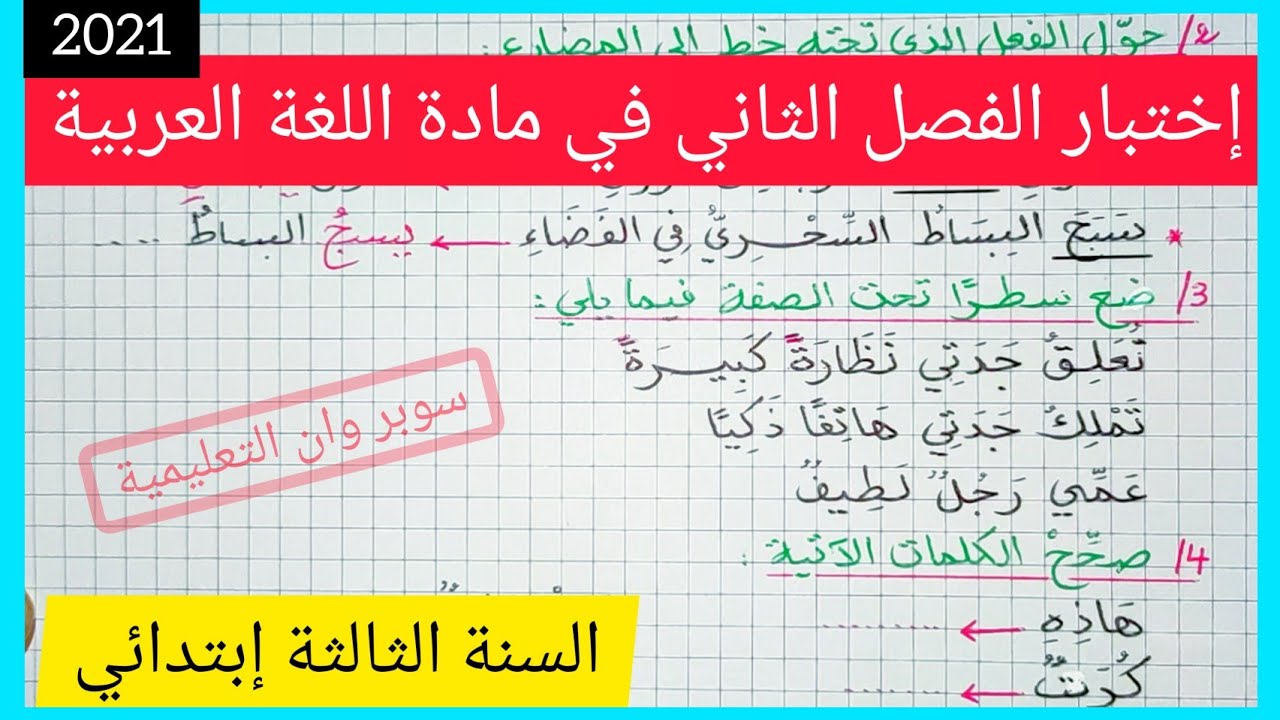 2021
2/ حوّل الفعل الذي تحته خط إلى المضارع :
إختبار الفصل الثاني في مادة اللغة العربية
* سَبَحَ البِسَاطُ السِّحْرِيُّ فِي الفَضَاءِ ← يسبحُ البساطُ ....
3/ ضع سطرًا تحت الصفة فيما يلي :
تُعَلِقُ جَدَتِي نَظَارَةً كَبِيرَةً
تَمْلِكُ جَدَتِي هَاتِفًا ذَكِيًا
سوبر وان التعليمية
عَمِّي رَجُلٌ لَطِيفٌ
4/ صحِّحْ الكلمات الآتية :
هَاذِهِ ← .........
السنة الثالثة إبتدائي
كُرَتٌ ← ........